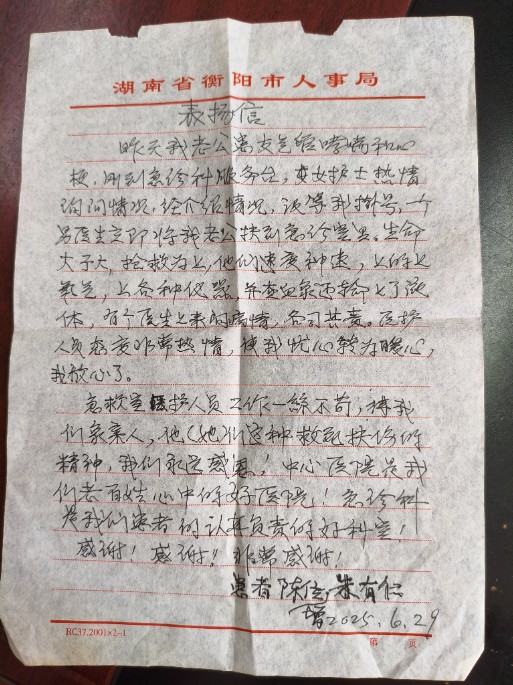 湖南省衡阳市人事局
表扬信
昨天我老公患支气管哮喘和心
梗,刚到急诊科服务台,受女护士热情
询问情况,经介绍情况,没等我挂号,一个
男医生立即将我老公扶到急诊室里。生命
大于天,抢救为上,他们速度神速,上的上
氧气,上各种仪器,并查血象还输上了液
体,有个医生上来问病情,各司其责。医护
人员态度非常热情,使我忧心转为暖心,
我放心了。
急救室医护人员工作一丝不苟,待我
们象亲人,他(她)们这种救死扶伤的
精神,我们永远感恩!中心医院是我
们老百姓心中的好医院!急诊科
是我们患者的认真负责的好科室!
感谢!感谢!!非常感谢!
患者 陈 朱有仁
2025.6.29
RC37.2001×2-1
第 页